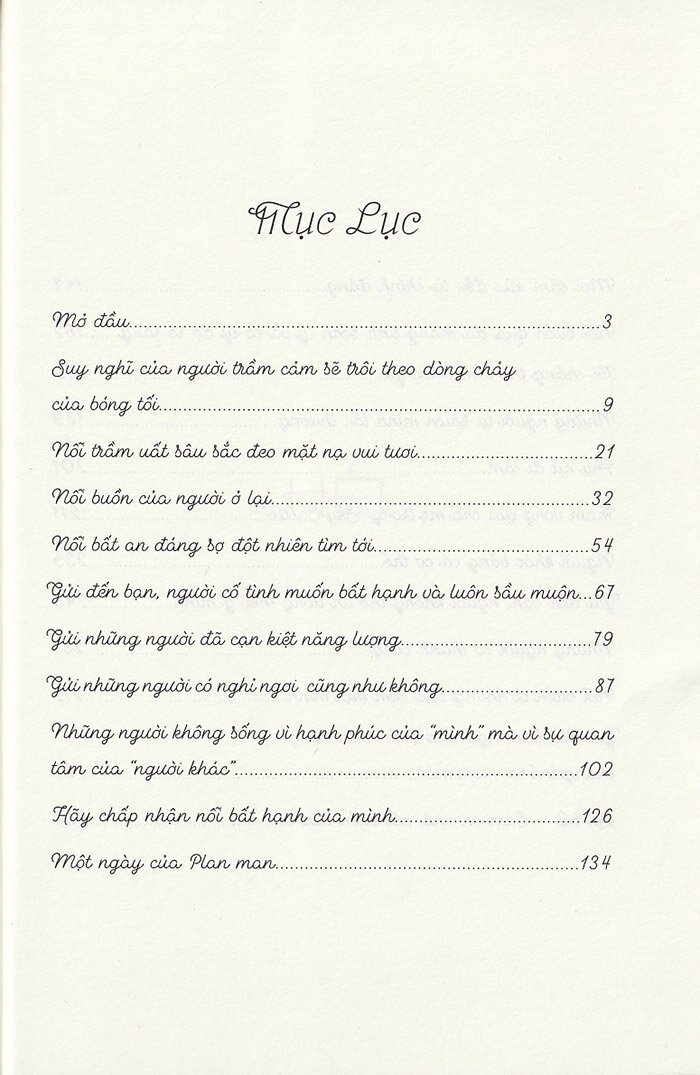 Mục Lục
Mở đầu.....3
Suy nghĩ của người trầm cảm sẽ trôi theo dòng chảy
của bóng tối.....9
Nỗi trầm uất sâu sắc đeo mặt nạ vui tươi.....21
Nỗi buồn của người ở lại.....32
Nỗi bất an đáng sợ đột nhiên tìm tới.....54
Gửi đến bạn, người cố tình muốn bất hạnh và luôn sầu muộn...67
Gửi những người đã cạn kiệt năng lượng.....79
Gửi những người có nghỉ ngơi cũng như không.....87
Những người không sống vì hạnh phúc của “mình” mà vì sự quan
tâm của “người khác”.....102
Hãy chấp nhận nỗi bất hạnh của mình.....126
Một ngày của Plan man.....134